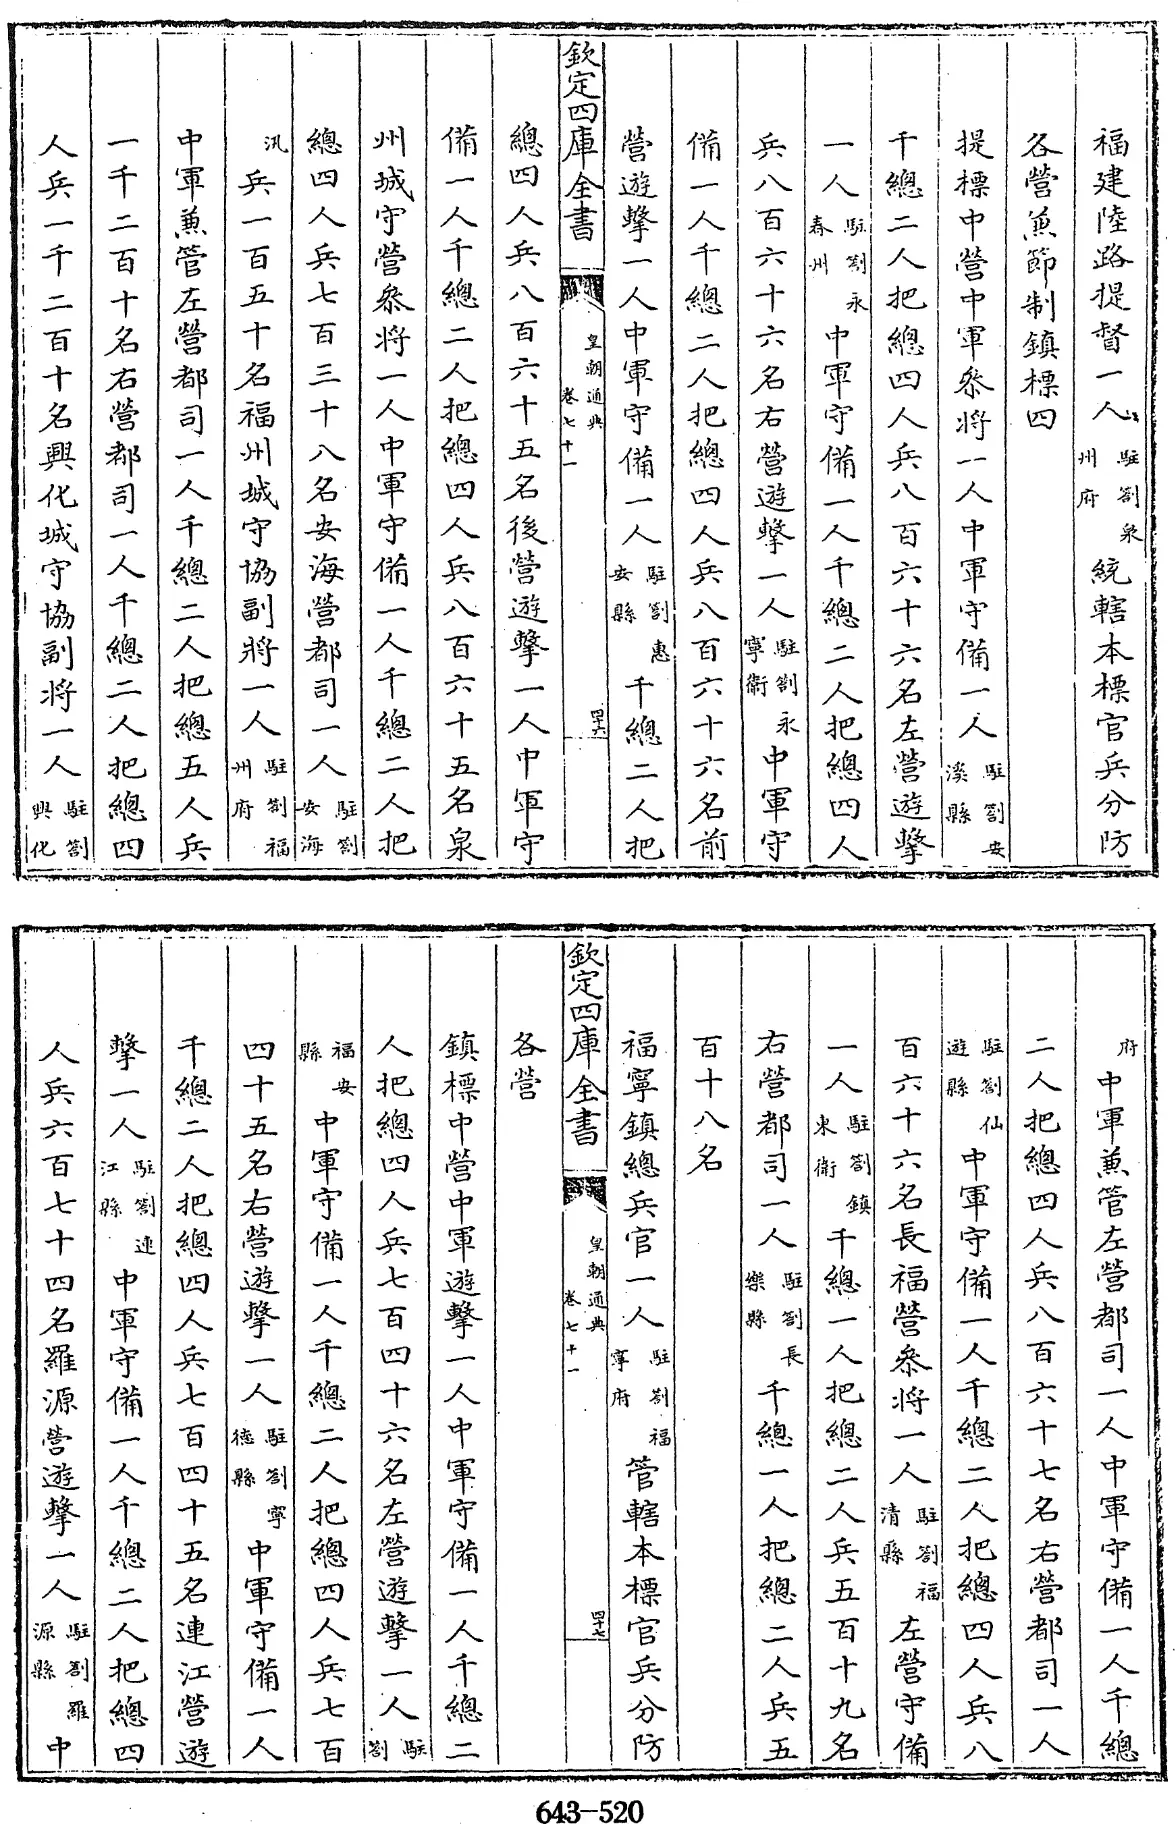 福建陸路提督一人駐劄泉州府統轄本標官兵分防
各營兼節制鎮標四
提標中營中軍叅將一人中軍守備一人駐劄安溪縣
千總二人把總四人兵八百六十六名左營遊擊
一人駐劄永春州中軍守備一人千總二人把總四人
兵八百六十六名右營遊擊一人駐劄永寧衛中軍守
備一人千總二人把總四人兵八百六十六名前
營遊擊一人中軍守備一人駐劄惠安縣千總二人把
欽定四庫全書
皇朝通典
卷七十一
四十六
總四人兵八百六十五名後營遊擊一人中軍守
備一人千總二人把總四人兵八百六十五名泉
州城守營叅將一人中軍守備一人千總二人把
總四人兵七百三十八名安海營都司一人駐劄安海
汛兵一百五十名福州城守協副將一人駐劄福州府
中軍兼管左營都司一人千總二人把總五人兵
一千二百十名右營都司一人千總二人把總四
人兵一千二百十名興化城守協副將一人駐劄興化
府中軍兼管左營都司一人中軍守備一人千總
二人把總四人兵八百六十七名右營都司一人
駐劄仙遊縣中軍守備一人千總二人把總四人兵八
百六十六名長福營叅將一人駐劄福清縣左營守備
一人駐劄鎮東衛千總一人把總二人兵五百十九名
右營都司一人駐劄長樂縣千總一人把總二人兵五
百十八名
福寧鎮總兵官一人駐劄福寧府管轄本標官兵分防
欽定四庫全書
皇朝通典
卷七十一
四十七
各營
鎮標中營中軍遊擊一人中軍守備一人千總二
人把總四人兵七百四十六名左營遊擊一人駐劄
福安縣中軍守備一人千總二人把總四人兵七百
四十五名右營遊擊一人駐劄寧德縣中軍守備一人
千總二人把總四人兵七百四十五名連江營遊
擊一人駐劄連江縣中軍守備一人千總二人把總四
人兵六百七十四名羅源營遊擊一人駐劄羅源縣中
643-520